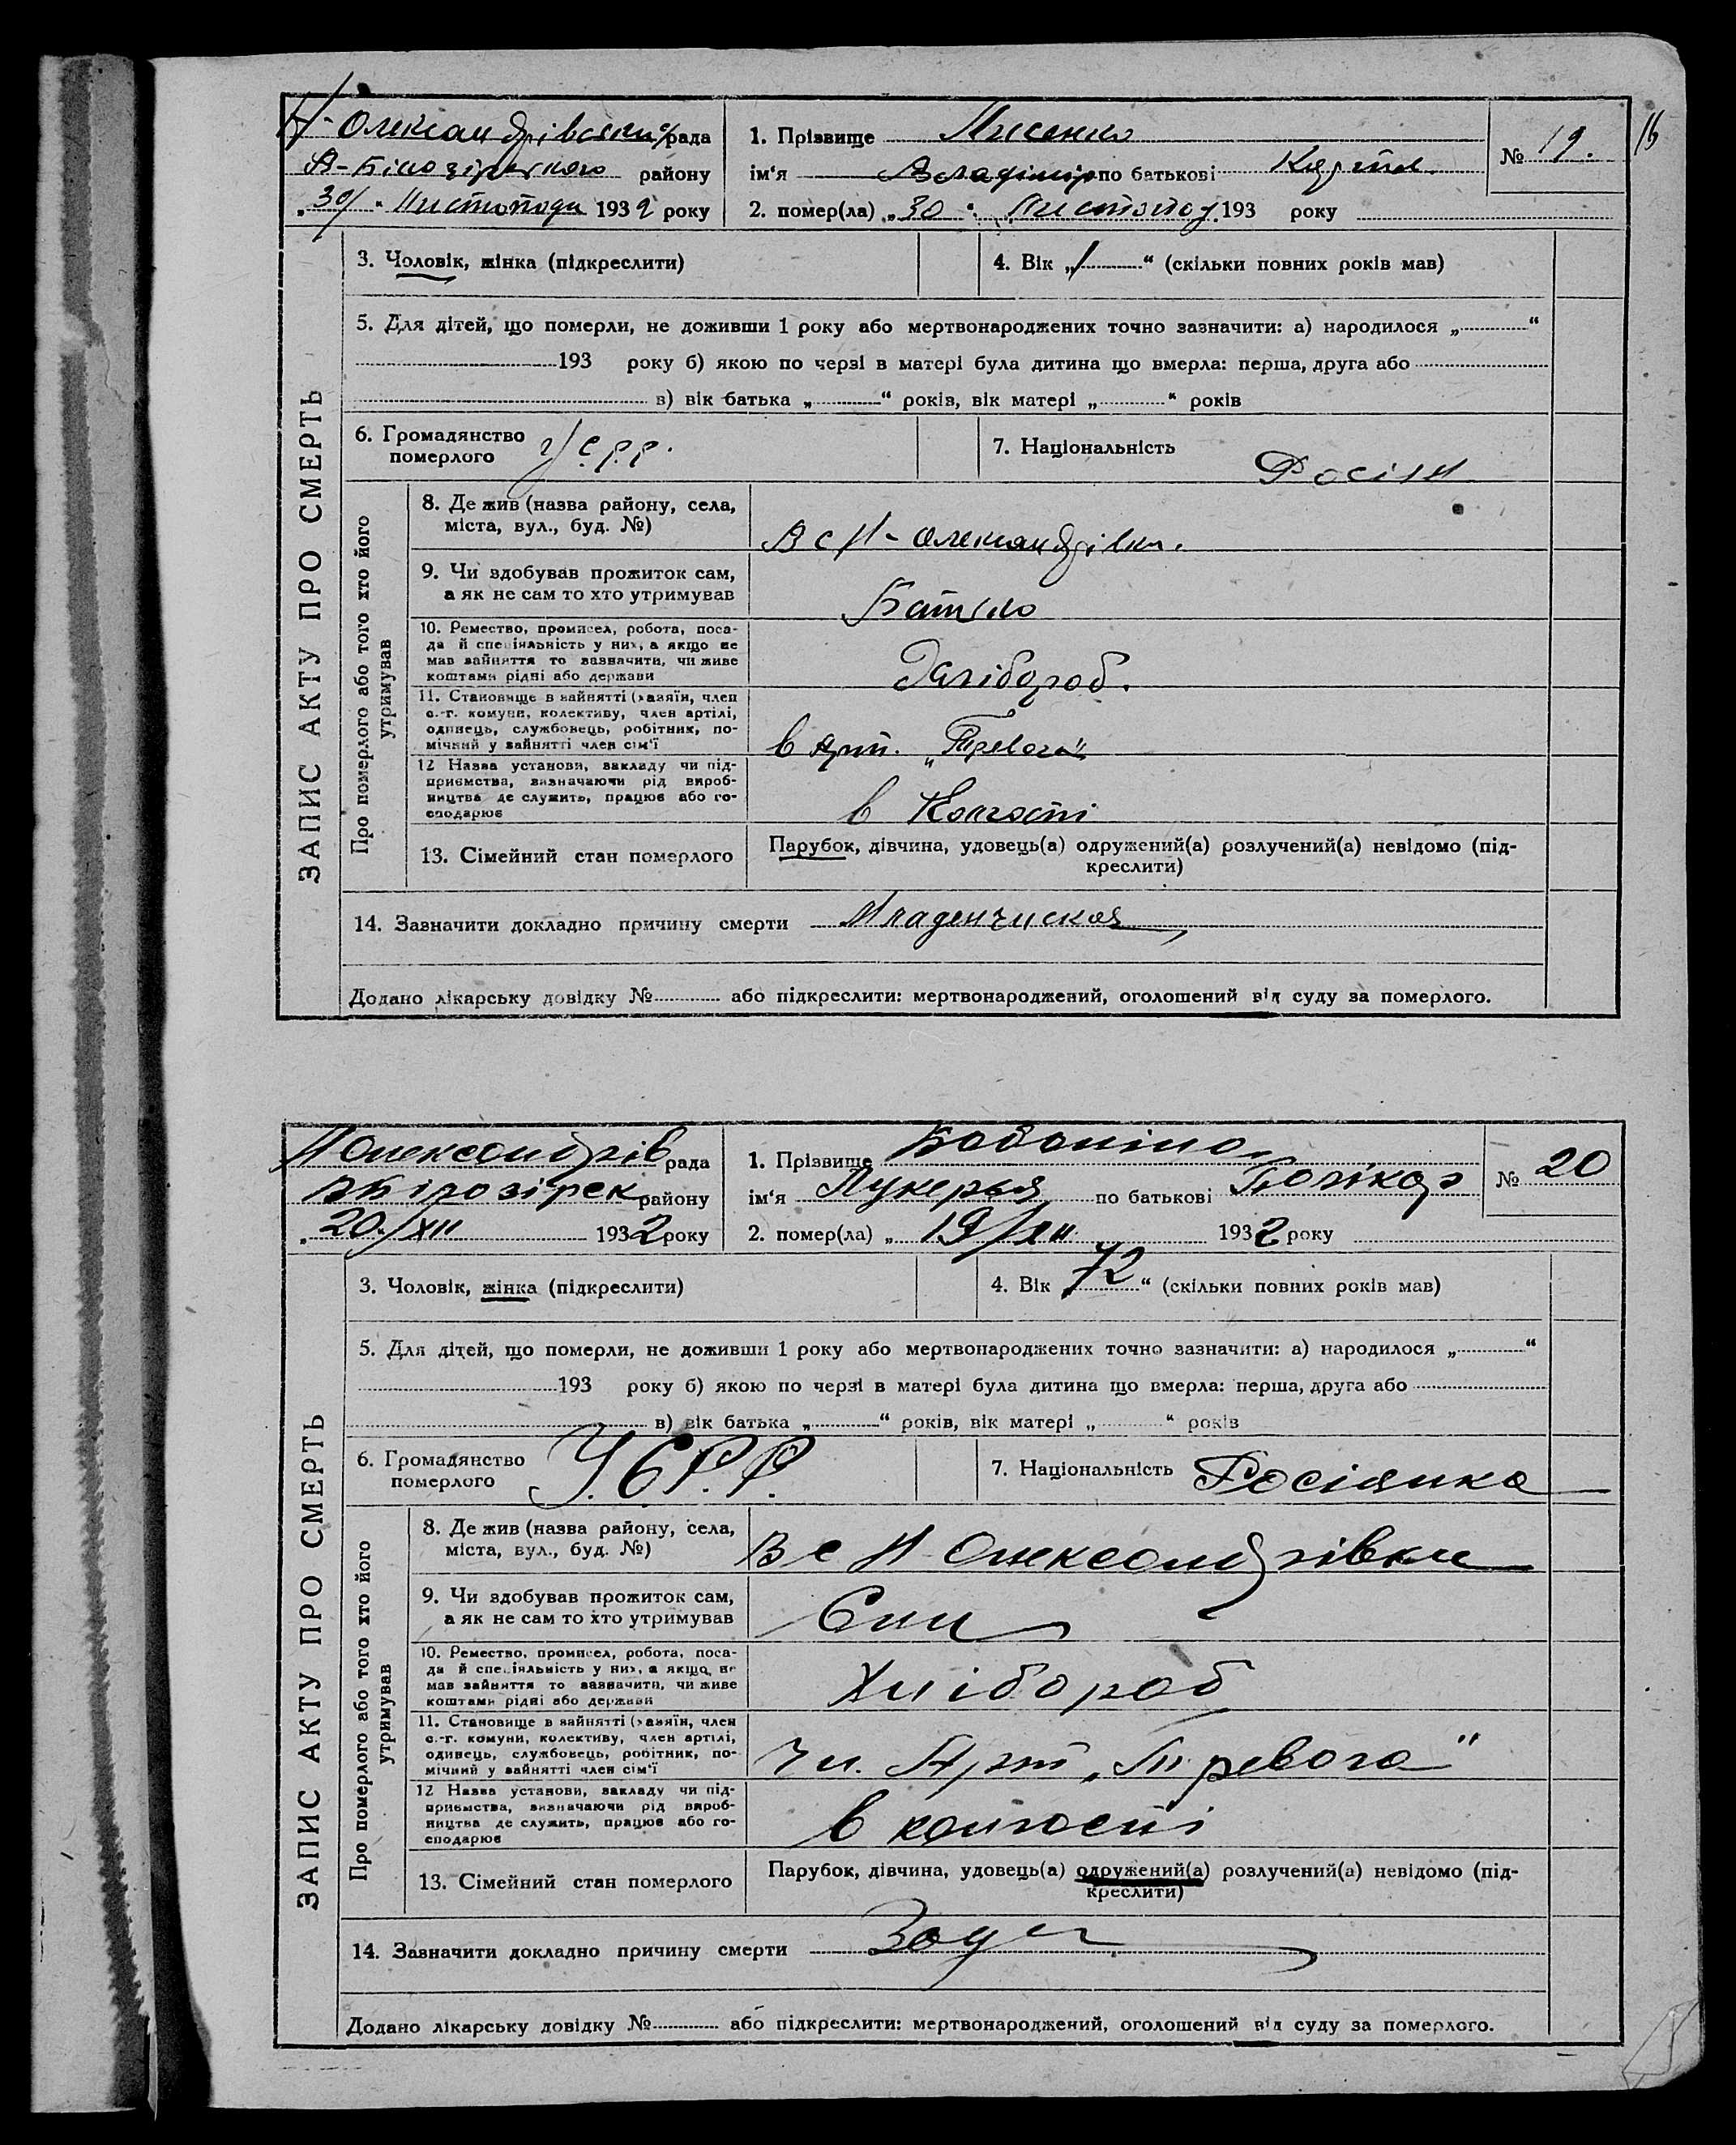 Н-Олександрівська с/рада
В-Білозірського району
„30/“ Листопада 1932 року
1. Прізвище Лисенко
ім‘я Владімір по батькові
2. помер(ла) „30“ Листопад 193 року
№ 19.
16
ЗАПИС АКТУ ПРО СМЕРТЬ
3. Чоловік, жінка (підкреслити)
4. Вік „1“ (скільки повних років мав)
5. Для дітей, що померли, не доживши 1 року або мертвонароджених точно зазначити: а) народилося „ “
193 року б) якою по черзі в матері була дитина що вмерла: перша, друга або
в) вік батька „ “ років, вік матері „ “ років
6. Громадянство
померлого
УСРР.
7. Національність
Росіян
Про померлого або того хто його
утримував
8. Де жив (назва району, села,
міста, вул., буд. №)
В с Н-Олександрівки.
9. Чи здобував прожиток сам,
а як не сам то хто утримував
Батько
10. Ремество, промисел, робота, поса-
да й спеціяльність у них, а якщо не
мав зайняття то зазначити, чи живе
коштами рідні або держави
Хлібороб.
11. Становище в зайнятті (хазяїн, член
с.-г. комуни, колективу, член артілі,
одинець, службовець, робітник, по-
мічний у зайнятті член сім‘ї
в арт. „Тревога“
12 Назва установи, закладу чи під-
приємства, визначаючи рід вироб-
ництва де служить, працює або го-
сподарює
в Колгоспі
13. Сімейний стан померлого
Парубок, дівчина, удовець(а) одружений(а) розлучений(а) невідомо (під-
креслити)
14. Зазначити докладно причину смерти Младенчиская
Додано лікарську довідку № або підкреслити: мертвонароджений, оголошений від суду за померлого.
Н Олександрів рада
В Білозірек району
„20/XII 1932 року
1. Прізвище Бабаніна
ім‘я Лукерья по батькові
2. помер(ла) „ 19/XII 1932 року
№ 20
ЗАПИС АКТУ ПРО СМЕРТЬ
3. Чоловік, жінка (підкреслити)
4. Вік 72“ (скільки повних років мав)
5. Для дітей, що померли, не доживши 1 року або мертвонароджених точно зазначити: а) народилося „ “
193 року б) якою по черзі в матері була дитина що вмерла: перша, друга або
в) вік батька „ “ років, вік матері „ “ років
6. Громадянство
померлого
У.С.Р.Р.
7. Національність Росіянка
Про померлого або того хто його
утримував
8. Де жив (назва району, села,
міста, вул., буд. №)
В с Н Олександрівки
9. Чи здобував прожиток сам,
а як не сам то хто утримував
Син
10. Ремество, промисел, робота, поса-
да й спеціяльність у них, а якщо не
мав зайняття то зазначити, чи живе
коштами рідні або держави
Хлібороб
11. Становище в зайнятті (хазяїн, член
с.-г. комуни, колективу, член артілі,
одинець, службовець, робітник, по-
мічний у зайнятті член сім‘ї
Чл. Арт „Тревога“
12 Назва установи, закладу чи під-
приємства, визначаючи рід вироб-
ництва де служить, працює або го-
сподарює
в колгоспі
13. Сімейний стан померлого
Парубок, дівчина, удовець(а) одружений(а) розлучений(а) невідомо (під-
креслити)
14. Зазначити докладно причину смерти
Додано лікарську довідку № або підкреслити: мертвонароджений, оголошений від суду за померлого.